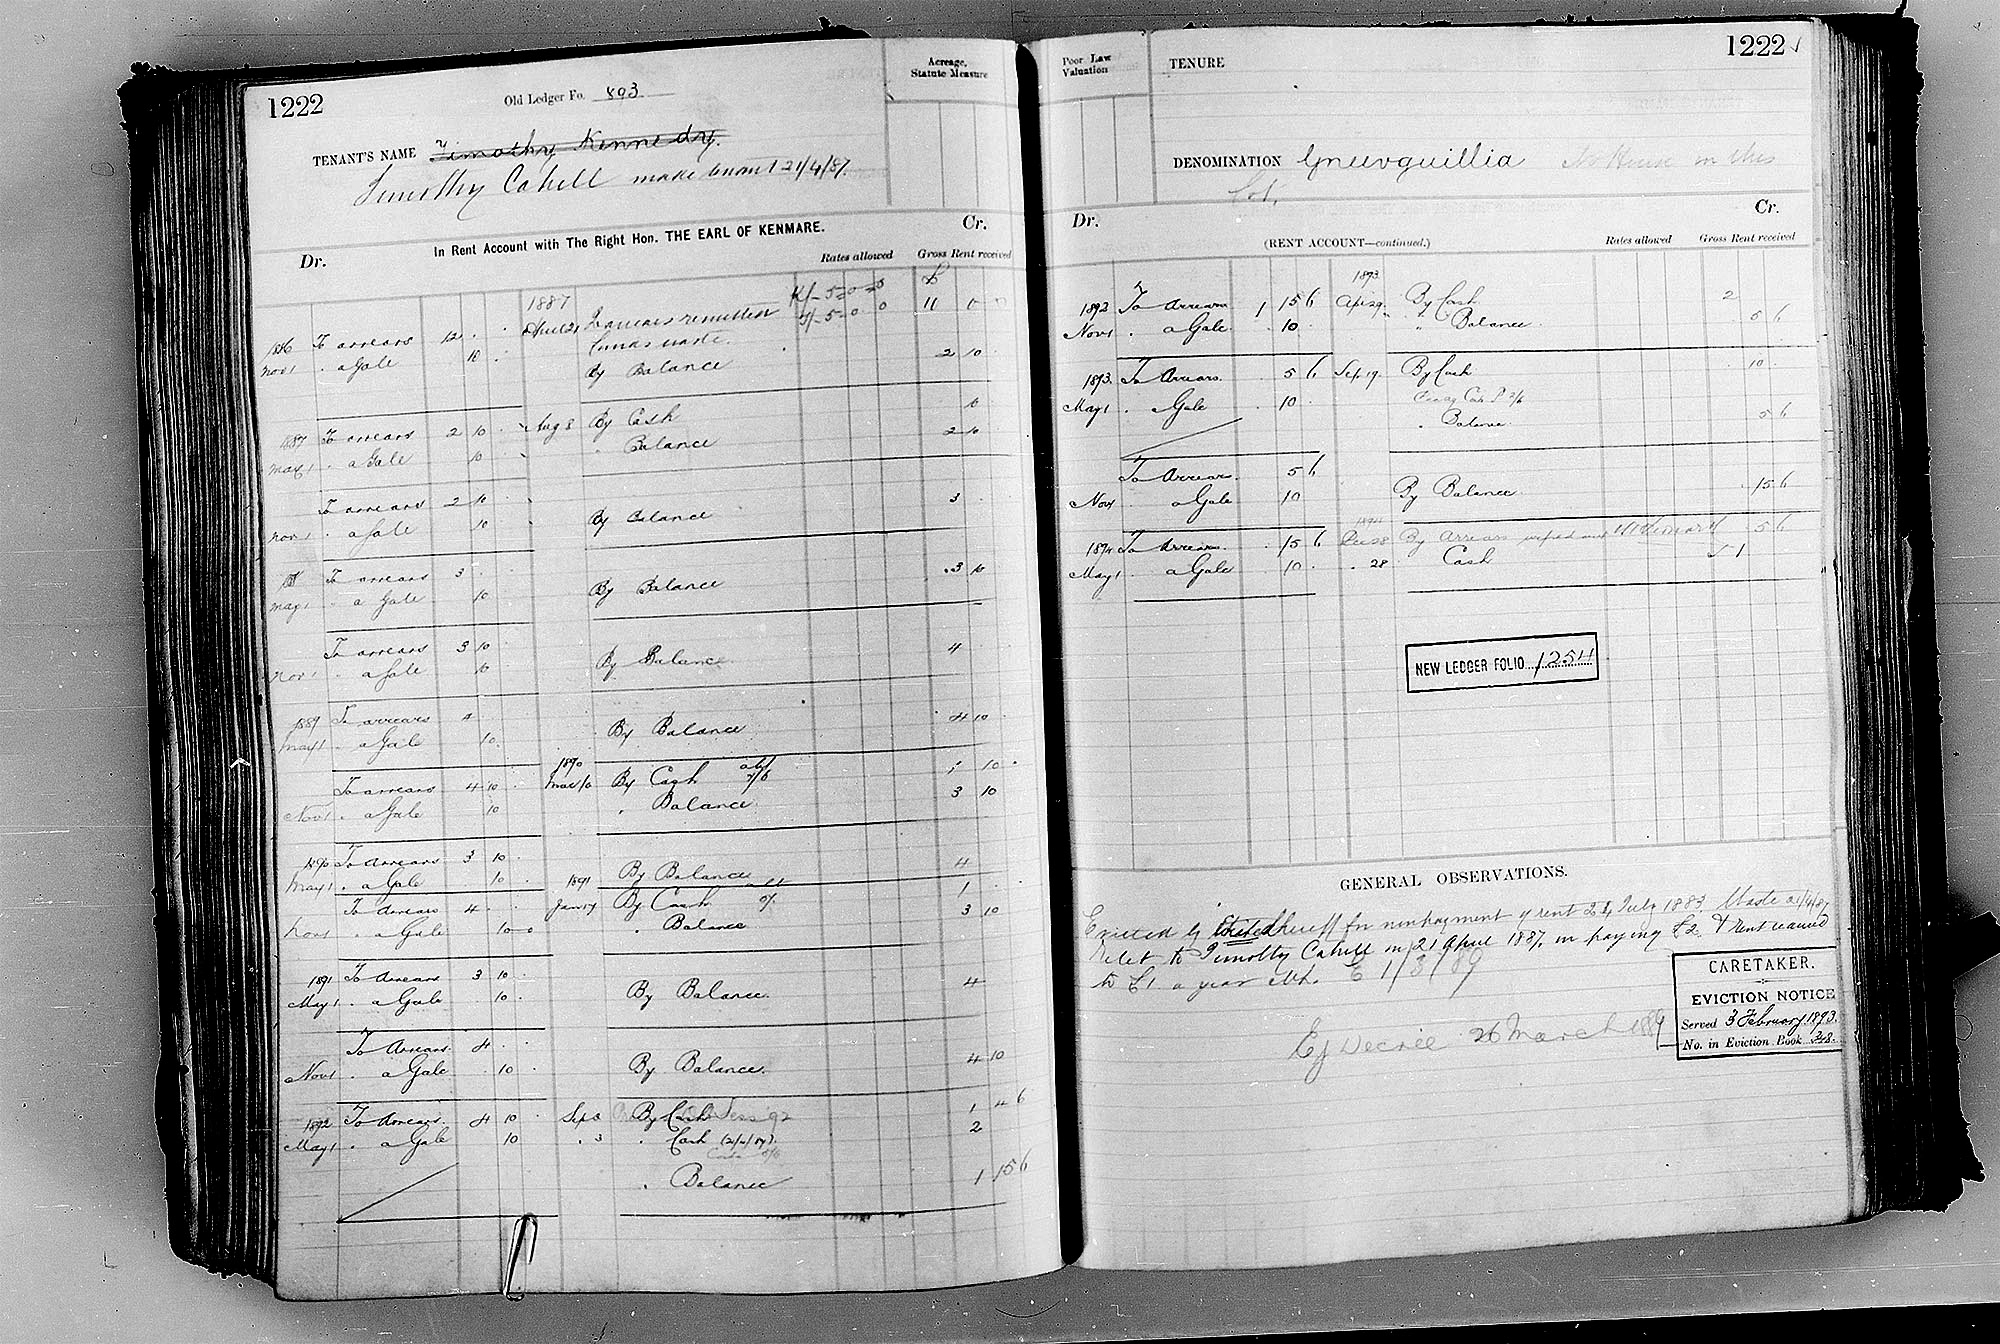 1222
Old Ledger Fo. 893
Acreage,
Statute Measure
TENANT'S NAME Timothy Kennedy.
Timothy Cahill make tenant 21/4/87.
In Rent Account with The Right Hon. THE EARL OF KENMARE.
Dr. Cr.
Rates allowed Gross Rent received
1887 K/- 5-0-0 £
1886 To arrears 12 . . April 21 Earrears remitted T/- 5-0 0 11 0 0
Nov 1 . a Gale 10 . waste.
By Balance 2 10
1887 To arrears 2 10 . Aug 8 By Cash 10
May 1 . a Gale 10 . " Balance 2 10
To arrears 2 10
Nov 1 . a Gale 10 By Balance 3 .
To arrears 3 .
May 1 . a Gale 10 By Balance 3 10
To arrears 3 10
Nov 1 . a Gale 10 By Balance 4
1889 To arrears 4
May 1 . a Gale 10. By Balance 4 10
1890
To arrears 4 10 . Mar 10 By Cash 1 10 .
Nov 1 . a Gale 10 . Balance 3 10
1890 To Arrears 3 10 .
May 1 . a Gale 10 . 1891 By Balance 4
To Arrears 4 . . By Cash 1 . .
Nov 1 . a Gale 10 . Balance 3 10
1891 To Arrears 3 10 .
May 1 . a Gale . 10 . By Balance. 4
To Arrears. 4 . .
Nov 1 . a Gale . 10 . By Balance. 4 10
1892 To Arrears. 4 10 . Sep 3 By Cash 1 4 6
May 1 . a Gale 10 . 3 . Cash (21/4/87). 2
Costs
. Balance 1 15 6
Poor Law
Valuation
TENURE
1222
DENOMINATION Gneevguillia No House on this
Lot.
Dr. Cr.
(RENT ACCOUNT—continued.)
Rates allowed Gross Rent received
1893
1892 To Arrears 1 15 6 Apl 29. By Cash 2
Nov 1 . a Gale . 10 . " Balance. 5 6
1893. To Arrears. . 5 6 Sep. 19. By Cash . 10 .
May 1 . Gale . 10 .
. Balance. 5 6
To Arrears. 5 6
Nov 1 a Gale 10 By Balance. . 15 6
1894
1894 To Arrears. . 15 6 By Arrears 5 6
May 1 . a Gale . 10 . . 28 Cash 1
NEW LEDGER FOLIO 1254
GENERAL OBSERVATIONS.
Evicted by Sheriff for nonpayment of rent 24 July 1883. Waste 21/4/87
Relet to Timothy Cahill on 21 April 1887, on paying £2 & Rent reduced
to £1 a year 1/3/89
Ej Decree 26 March 1889
CARETAKER.
EVICTION NOTICE
Served 3 February 1893.
No. in Eviction Book 348.